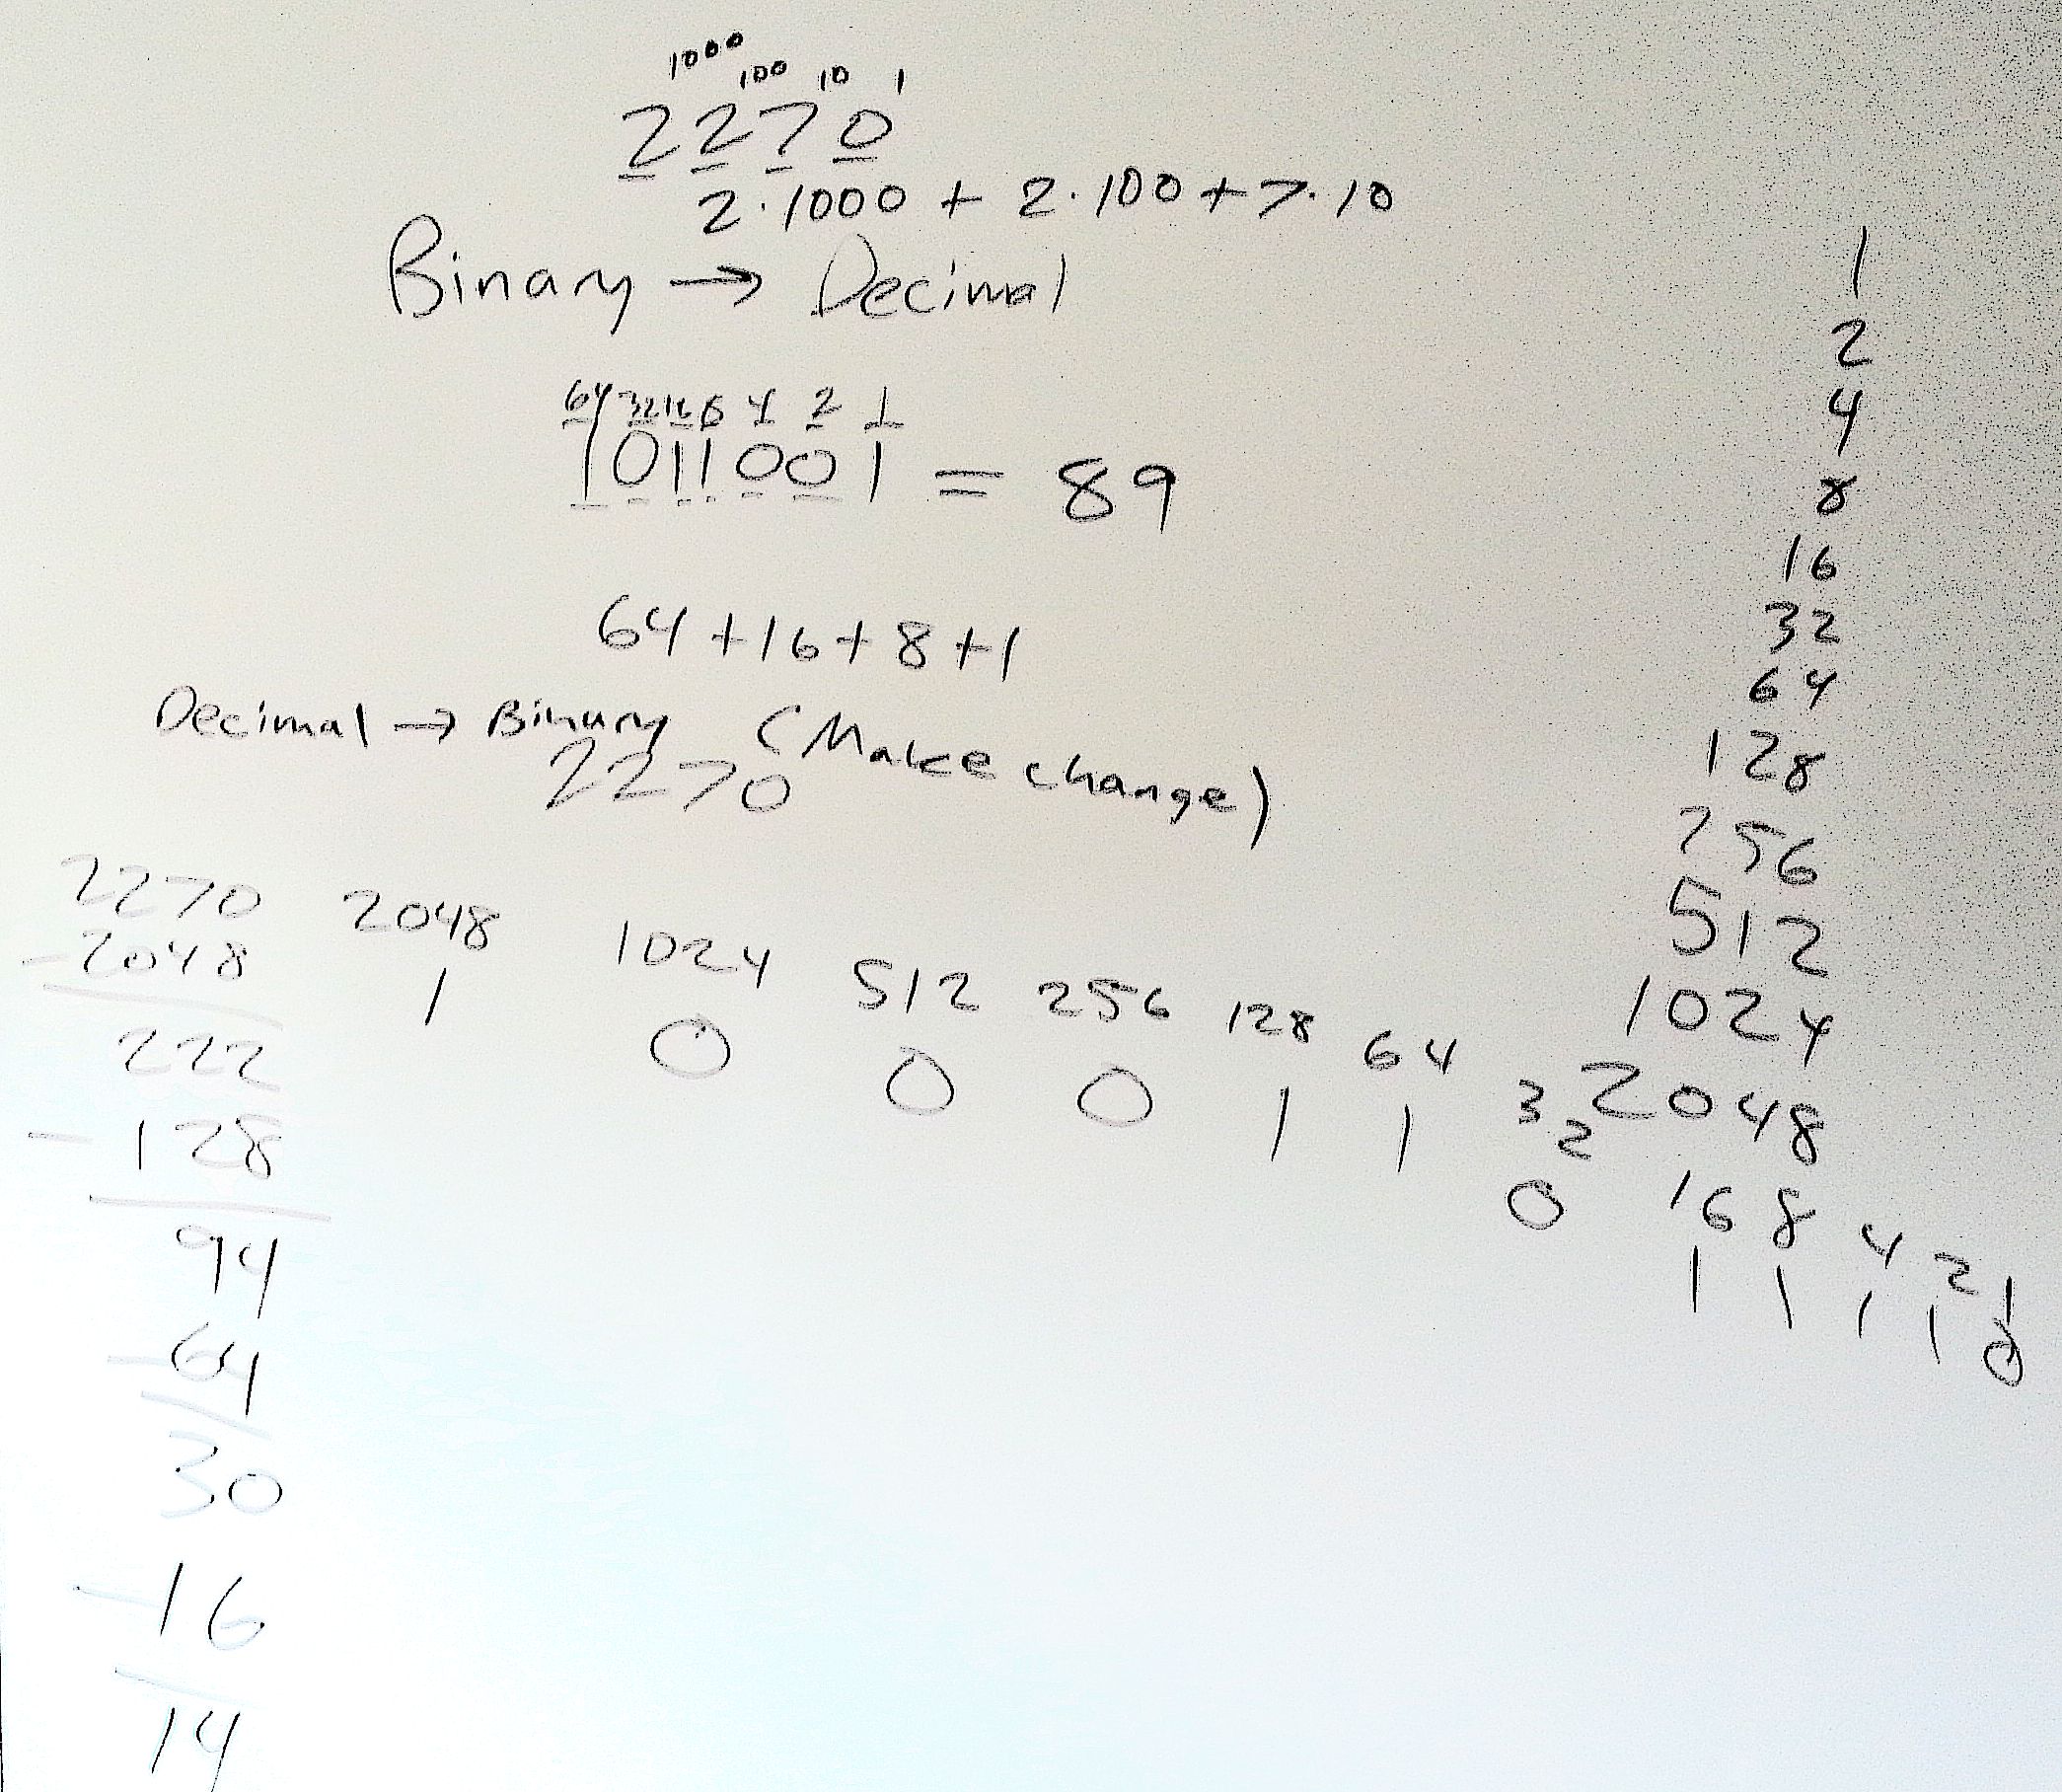 1000 100 10 1
2270
2·1000 + 2·100 + 7·10
Binary → Decimal
64 32 16 8 4 2 1
1011001 = 89
64 + 16 + 8 + 1
Decimal → Binary (Make change)
2270
2270
-2048
222
-128
94
-64
30
-16
14
2048 1024 512 256 128 64 32 16 8 4 2 1
1 0 0 0 1 1 0 1 1 1 1 0
1
2
4
8
16
32
64
128
256
512
1024
2048